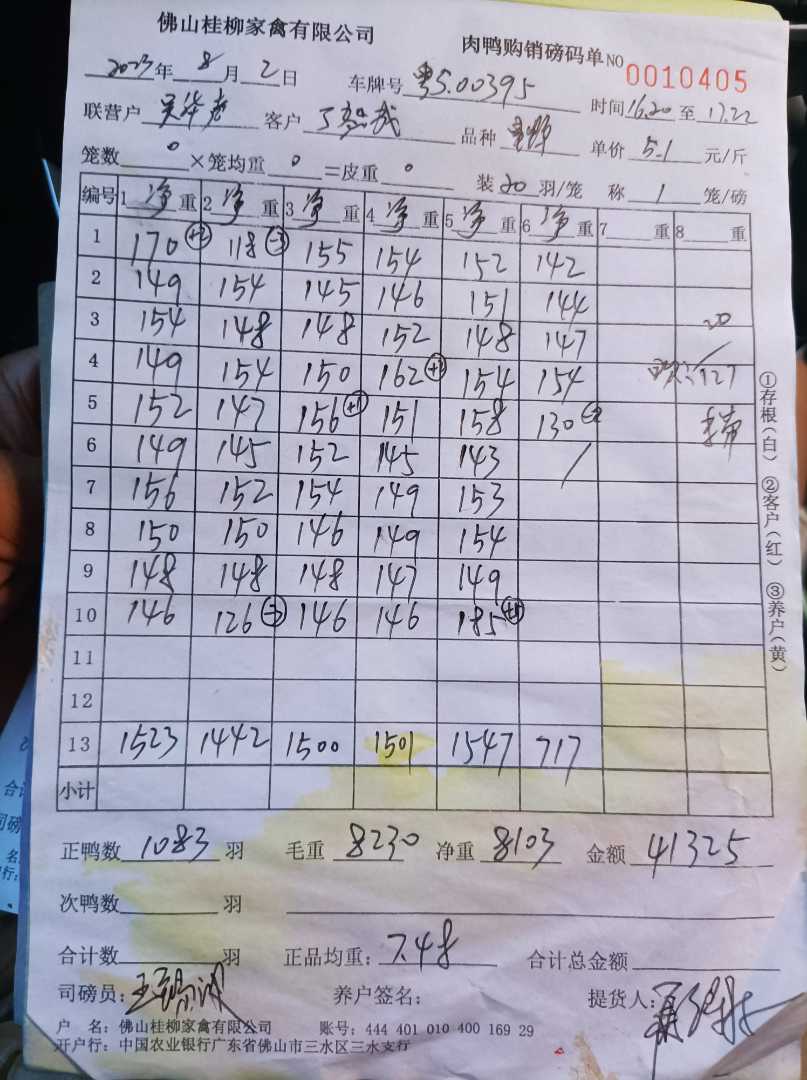 佛山桂柳家禽有限公司 肉鸭购销磅码单 NO 0010405
2023年 8月 2日 车牌号 粤S.00395 时间 16.20 至 17.22
联营户 客户 品种 单价 5.1 元/斤
笼数 0 ×笼均重 0 =皮重 0 装 20 羽/笼 称 1 笼/磅
编号 1 净 重 2 净 重 3 净 重 4 净 重 5 净 重 6 净 重 7 重 8 重
1 170 (+2) 118 (-3) 155 154 152 142
2 149 154 145 146 151 144
3 154 148 148 152 148 147 20
4 149 154 150 162 154 154 127
5 152 147 156 (+1) 151 158 130
6 149 145 152 145 143 /
7 156 152 154 149 153
8 150 150 146 149 154
9 148 148 148 147 149
10 146 126 (-3) 146 146 185
11
12
13 1523 1442 1500 1501 1547 717
小计
①存根(白) ②客户(红) ③养户(黄)
正鸭数 1083 羽 毛重 8230 净重 8103 金额 41325
次鸭数 羽
合计数 羽 正品均重: 7.48 合计总金额
司磅员: 养户签名: 提货人:
户 名: 佛山桂柳家禽有限公司 账号: 444 401 010 400 169 29
开户行: 中国农业银行广东省佛山市三水区三水支行